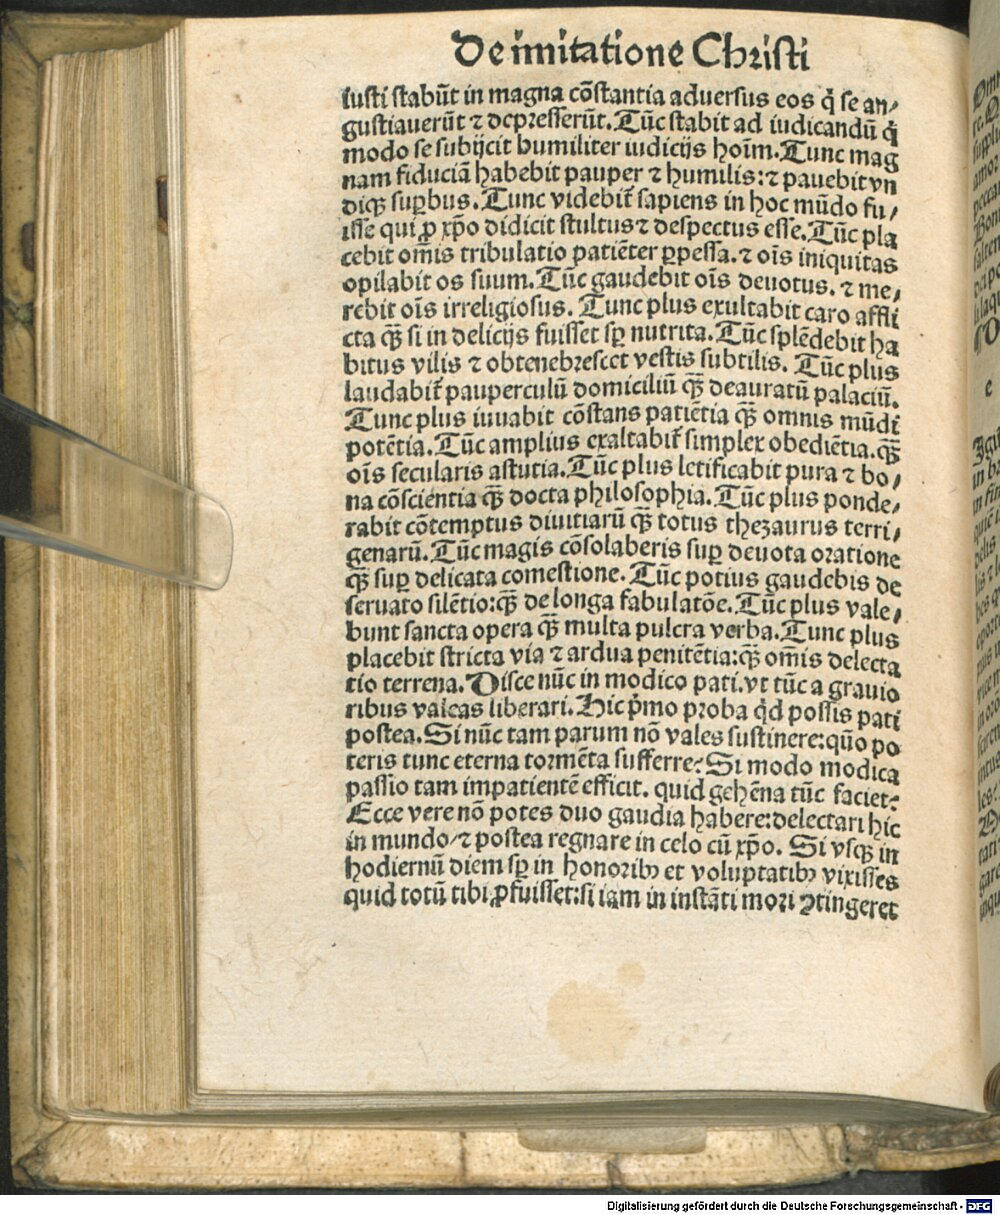 De imitatione Christi
iusti stabūt in magna cōstantia aduersus eos q̄ se an⸗
gustiauerūt ⁊ depresserūt. Tūc stabit ad iudicandū q̄
modo se subijcit humiliter iudicijs hoīm. Tunc mag
nam fiduciā habebit pauper ⁊ humilis: ⁊ pauebit vn
diqꝫ suꝑbus. Tunc videbit᷑ sapiens in hoc mūdo fu⸗
isse qui ꝓ xp̄o didicit stultus ⁊ despectus esse. Tūc pla
cebit om̄is tribulatio patiēter ꝑpessa. ⁊ oīs iniquitas
opilabit os suum. Tūc gaudebit oīs deuotus. ⁊ me⸗
rebit oīs irreligiosus. Tunc plus exultabit caro affli
cta qꝫ̄ si in delicijs fuisset sꝑ nutrita. Tūc splēdebit ha
bitus vilis ⁊ obtenebrescet vestis subtilis. Tūc plus
laudabit᷑ pauperculū domiciliū qꝫ̄ deauratū palaciū.
Tunc plus iuuabit cōstans patiētia qꝫ̄ omnis mūdi
potētia. Tūc amplius exaltabit᷑ simplex obediētia. qꝫ̄
oīs secularis astutia. Tūc plus letificabit pura ⁊ bo⸗
na cōscientia qꝫ̄ docta philosophia. Tūc plus ponde⸗
rabit cōtemptus diuitiarū qꝫ̄ totus thezaurus terri⸗
genarū. Tūc magis cōsolaberis suꝑ deuota oratione
qꝫ̄ suꝑ delicata comestione. Tūc potius gaudebis de
seruato silētio: qꝫ̄ de longa fabulatōe. Tūc plus vale⸗
bunt sancta opera qꝫ̄ multa pulcra verba. Tunc plus
placebit stricta via ⁊ ardua penitētia: qꝫ̄ om̄is delecta
tio terrena. Disce nūc in modico pati. vt tūc a grauio
ribus valeas liberari. Hic p̄mo proba qd̄ possis pati
postea. Si nūc tam parum nō vales sustinere: quō po
teris tunc eterna tormēta sufferre? Si modo modica
passio tam impatientē efficit. quid gehēna tūc faciet?
Ecce vere nō potes duo gaudia habere: delectari hic
in mundo/ ⁊ postea regnare in celo cū xp̄o. Si vsqꝫ in
hodiernū diem sꝑ in honoribꝫ et voluptatibꝫ vixisses
quid totū tibi ꝓfuisset: si iam in instāti mori ꝯtingeret
Digitalisierung gefördert durch die Deutsche Forschungsgemeinschaft - DFG